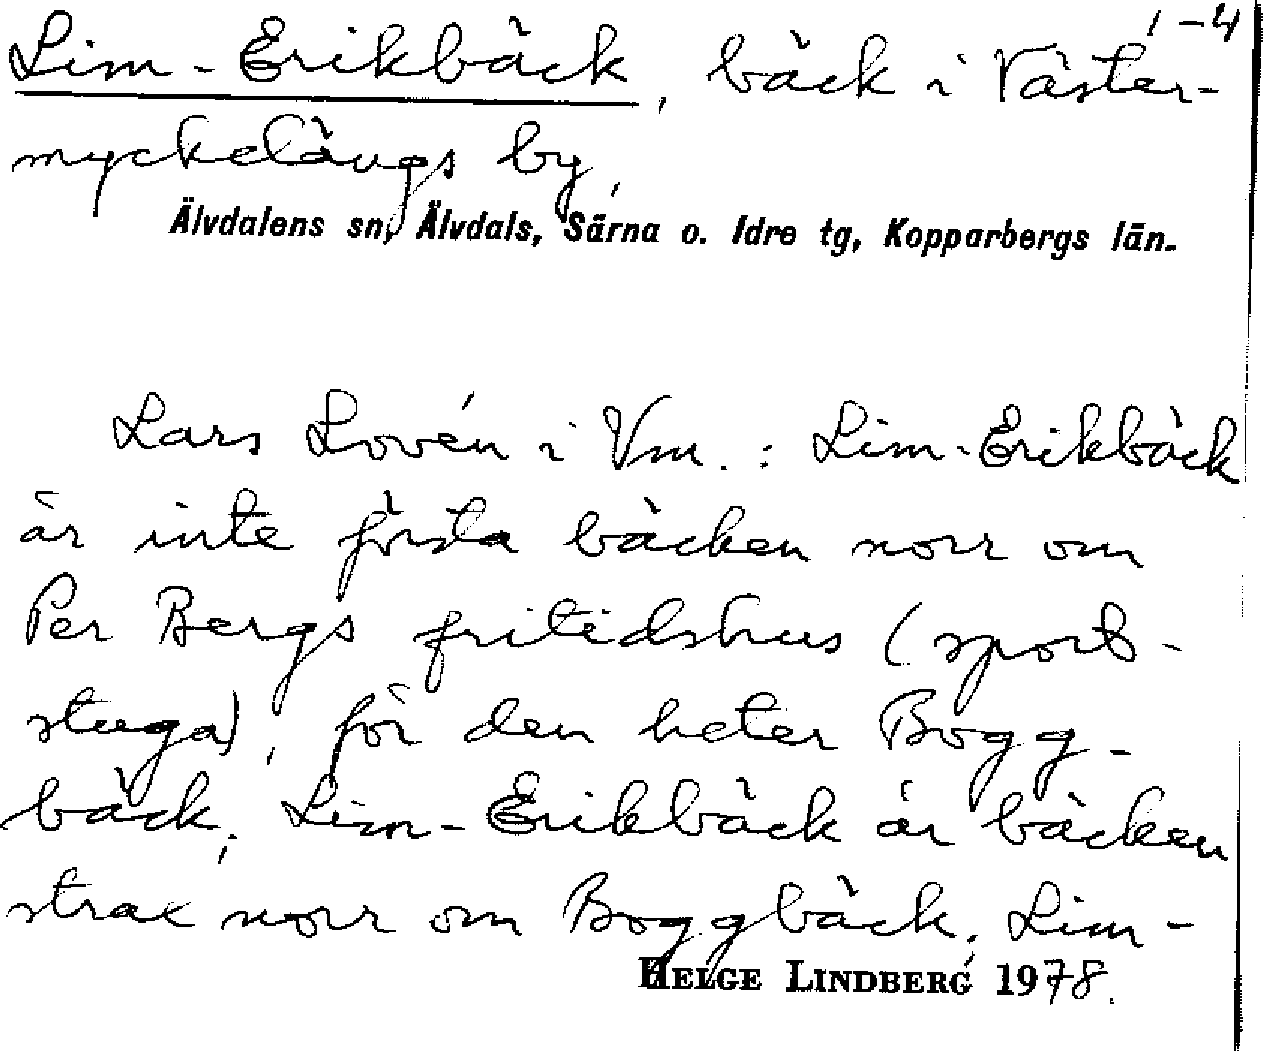 1-4
Lim-Erikbäck, bäck i Väster-
myckelängs by,
Älvdalens sn, Älvdals, Särna o. Idre tg, Kopparbergs län.
Lars Lovén i Vm. : Lim-Erikbäck
är inte första bäcken norr om
Per Bergs fritidshus (sport-
stuga), för den heter Bogg-
bäck; Lim-Erikbäck är bäcken
strax norr om Boggbäck; Lim-
HELGE LINDBERG 1978.